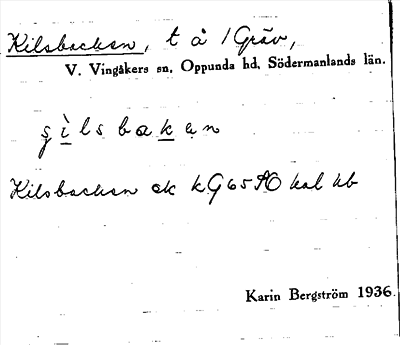 Kilsbacken, t å 1 Gräv,
V. Vingåkers sn, Oppunda hd, Södermanlands län.
ʂìlsbakan
Kilsbacken ek kG65 hal kb
Karin Bergström 1936.